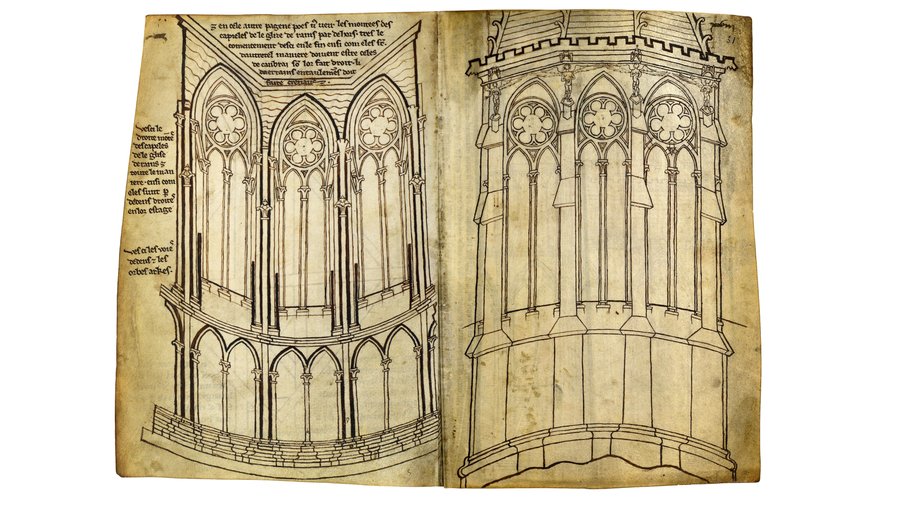 ⁊ en cele autre pagene poes vos veir les montees des
capieles de le glize de rains par dehors tres le
comencement desci en le fin ensi com eles sūt.
dautretel maniere doivent estre celes
de canbrai son lor fait droit. li
daerrains entaulemens doit
faire cretiaus.
vesci le
droite mon
des capeles
de le glise
de rains ⁊
toute le man
iere. ensi com
eles sunt p
dedens droites
en lor estage
vesci les voies
dedens ⁊ les
orbes arkes.
31